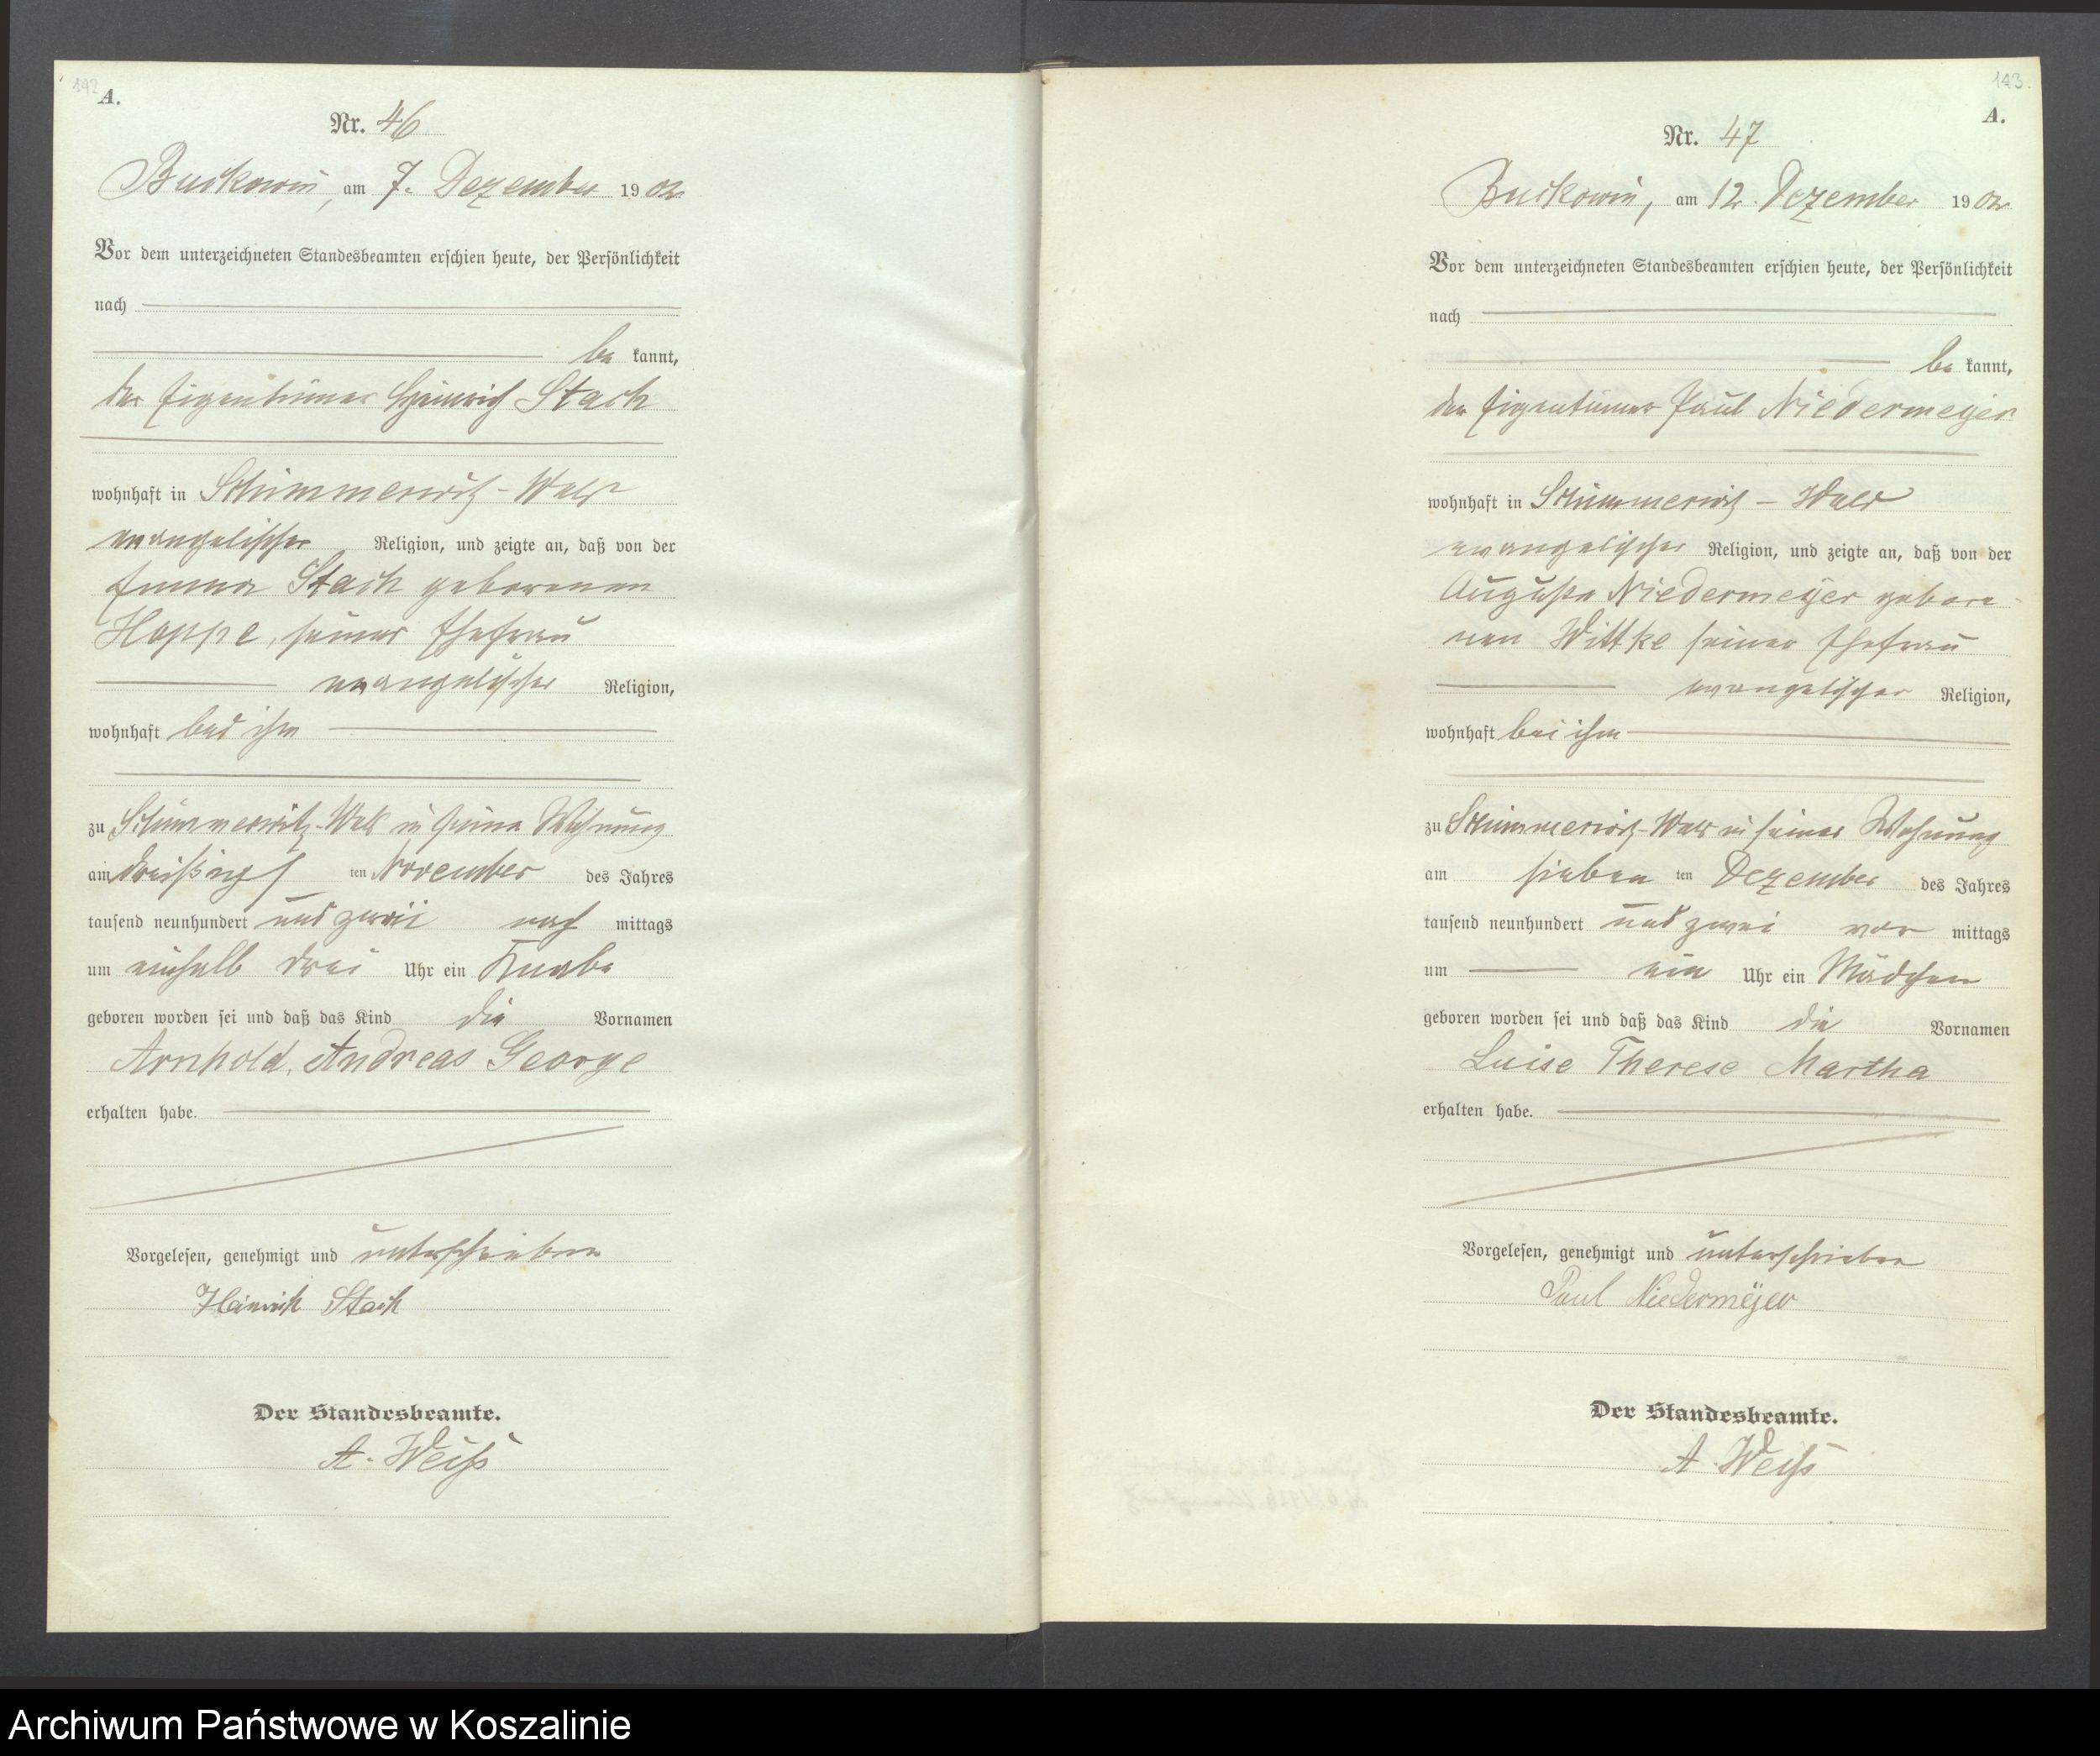 142
A.
Nr. 46
Buckowin, am 7. Dezember 1902
Vor dem unterzeichneten Standesbeamten erschien heute, der Persönlichkeit
nach
be kannt,
der Eigentümer Heinrich Stach
wohnhaft in Schimmerwitz-Wald
evangelischer Religion, und zeigte an, daß von der
Emma Stach geborenen
Hoppe, seiner Ehefrau
evangelischer Religion,
wohnhaft bei ihm
zu Schimmerwitz-Wald in seiner Wohnung
am dreißigs ten November des Jahres
tausend neunhundert und zwei nach mittags
um einhalb drei Uhr ein Knabe
geboren worden sei und daß das Kind die Vornamen
Arnhold, Andreas George
erhalten habe.
Vorgelesen, genehmigt und unterschrieben
Heinrich Stach
Der Standesbeamte.
A. Weiß
143.
A.
Nr. 47
Buckowin, am 12. Dezember 1902
Vor dem unterzeichneten Standesbeamten erschien heute, der Persönlichkeit
nach
be kannt,
der Eigentümer Paul Niedermeyer
wohnhaft in Schimmerwitz-Wald
evangelischer Religion, und zeigte an, daß von der
Auguste Niedermeyer gebore-
nen Wittke seiner Ehefrau
evangelischer Religion,
wohnhaft bei ihm
zu Schimmerwitz-Wald in seiner Wohnung
am sieben ten Dezember des Jahres
tausend neunhundert und zwei vor mittags
um ein Uhr ein Mädchen
geboren worden sei und daß das Kind die Vornamen
Luise Therese Martha
erhalten habe.
Vorgelesen, genehmigt und unterschrieben
Paul Niedermeyer
Der Standesbeamte.
A. Weiß
Archiwum Państwowe w Koszalinie